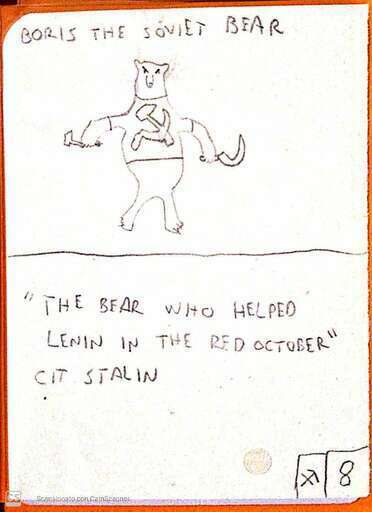 BORIS THE SOVIET BEAR
"THE BEAR WHO HELPED
LENIN IN THE RED OCTOBER"
CIT STALIN
8
CS Scansionato con CamScanner